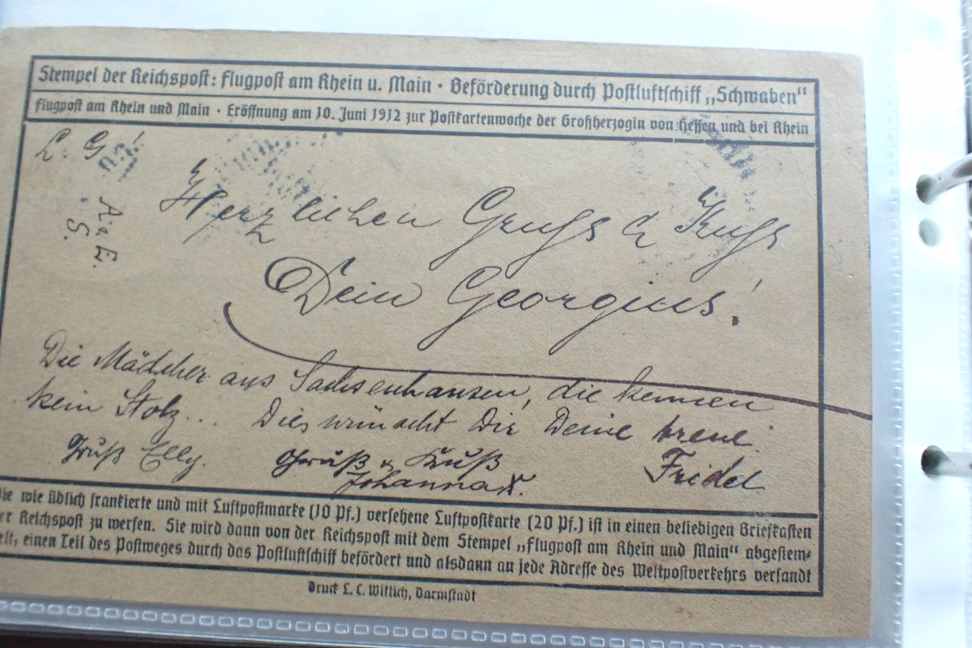 Stempel der Reichspost: Flugpost am Rhein u. Main · Beförderung durch Postluftschiff „Schwaben“
Flugpost am Rhein und Main · Eröffnung am 10. Juni 1912 zur Postkartenwoche der Großherzogin von Hessen und bei Rhein
L. G.
A. E.
S.
Herzlichen Gruss & Kuss
Dein Georgius!
Die Mädcher aus Sachsenhausen, die kennen
kein Stolz... Dies wünscht Dir Deine treue
Gruß Elly. Gruß u. Kuß Fridel
Johanna
Die wie üblich frankierte und mit Luftpostmarke (10 Pf.) versehene Luftpostkarte (20 Pf.) ist in einen beliebigen Briefkasten
der Reichspost zu werfen. Sie wird dann von der Reichspost mit dem Stempel „Flugpost am Rhein und Main“ abgestem-
pelt, einen Teil des Postweges durch das Postluftschiff befördert und alsdann an jede Adresse des Weltpostverkehrs versandt
Druck L. C. Wittich, Darmstadt